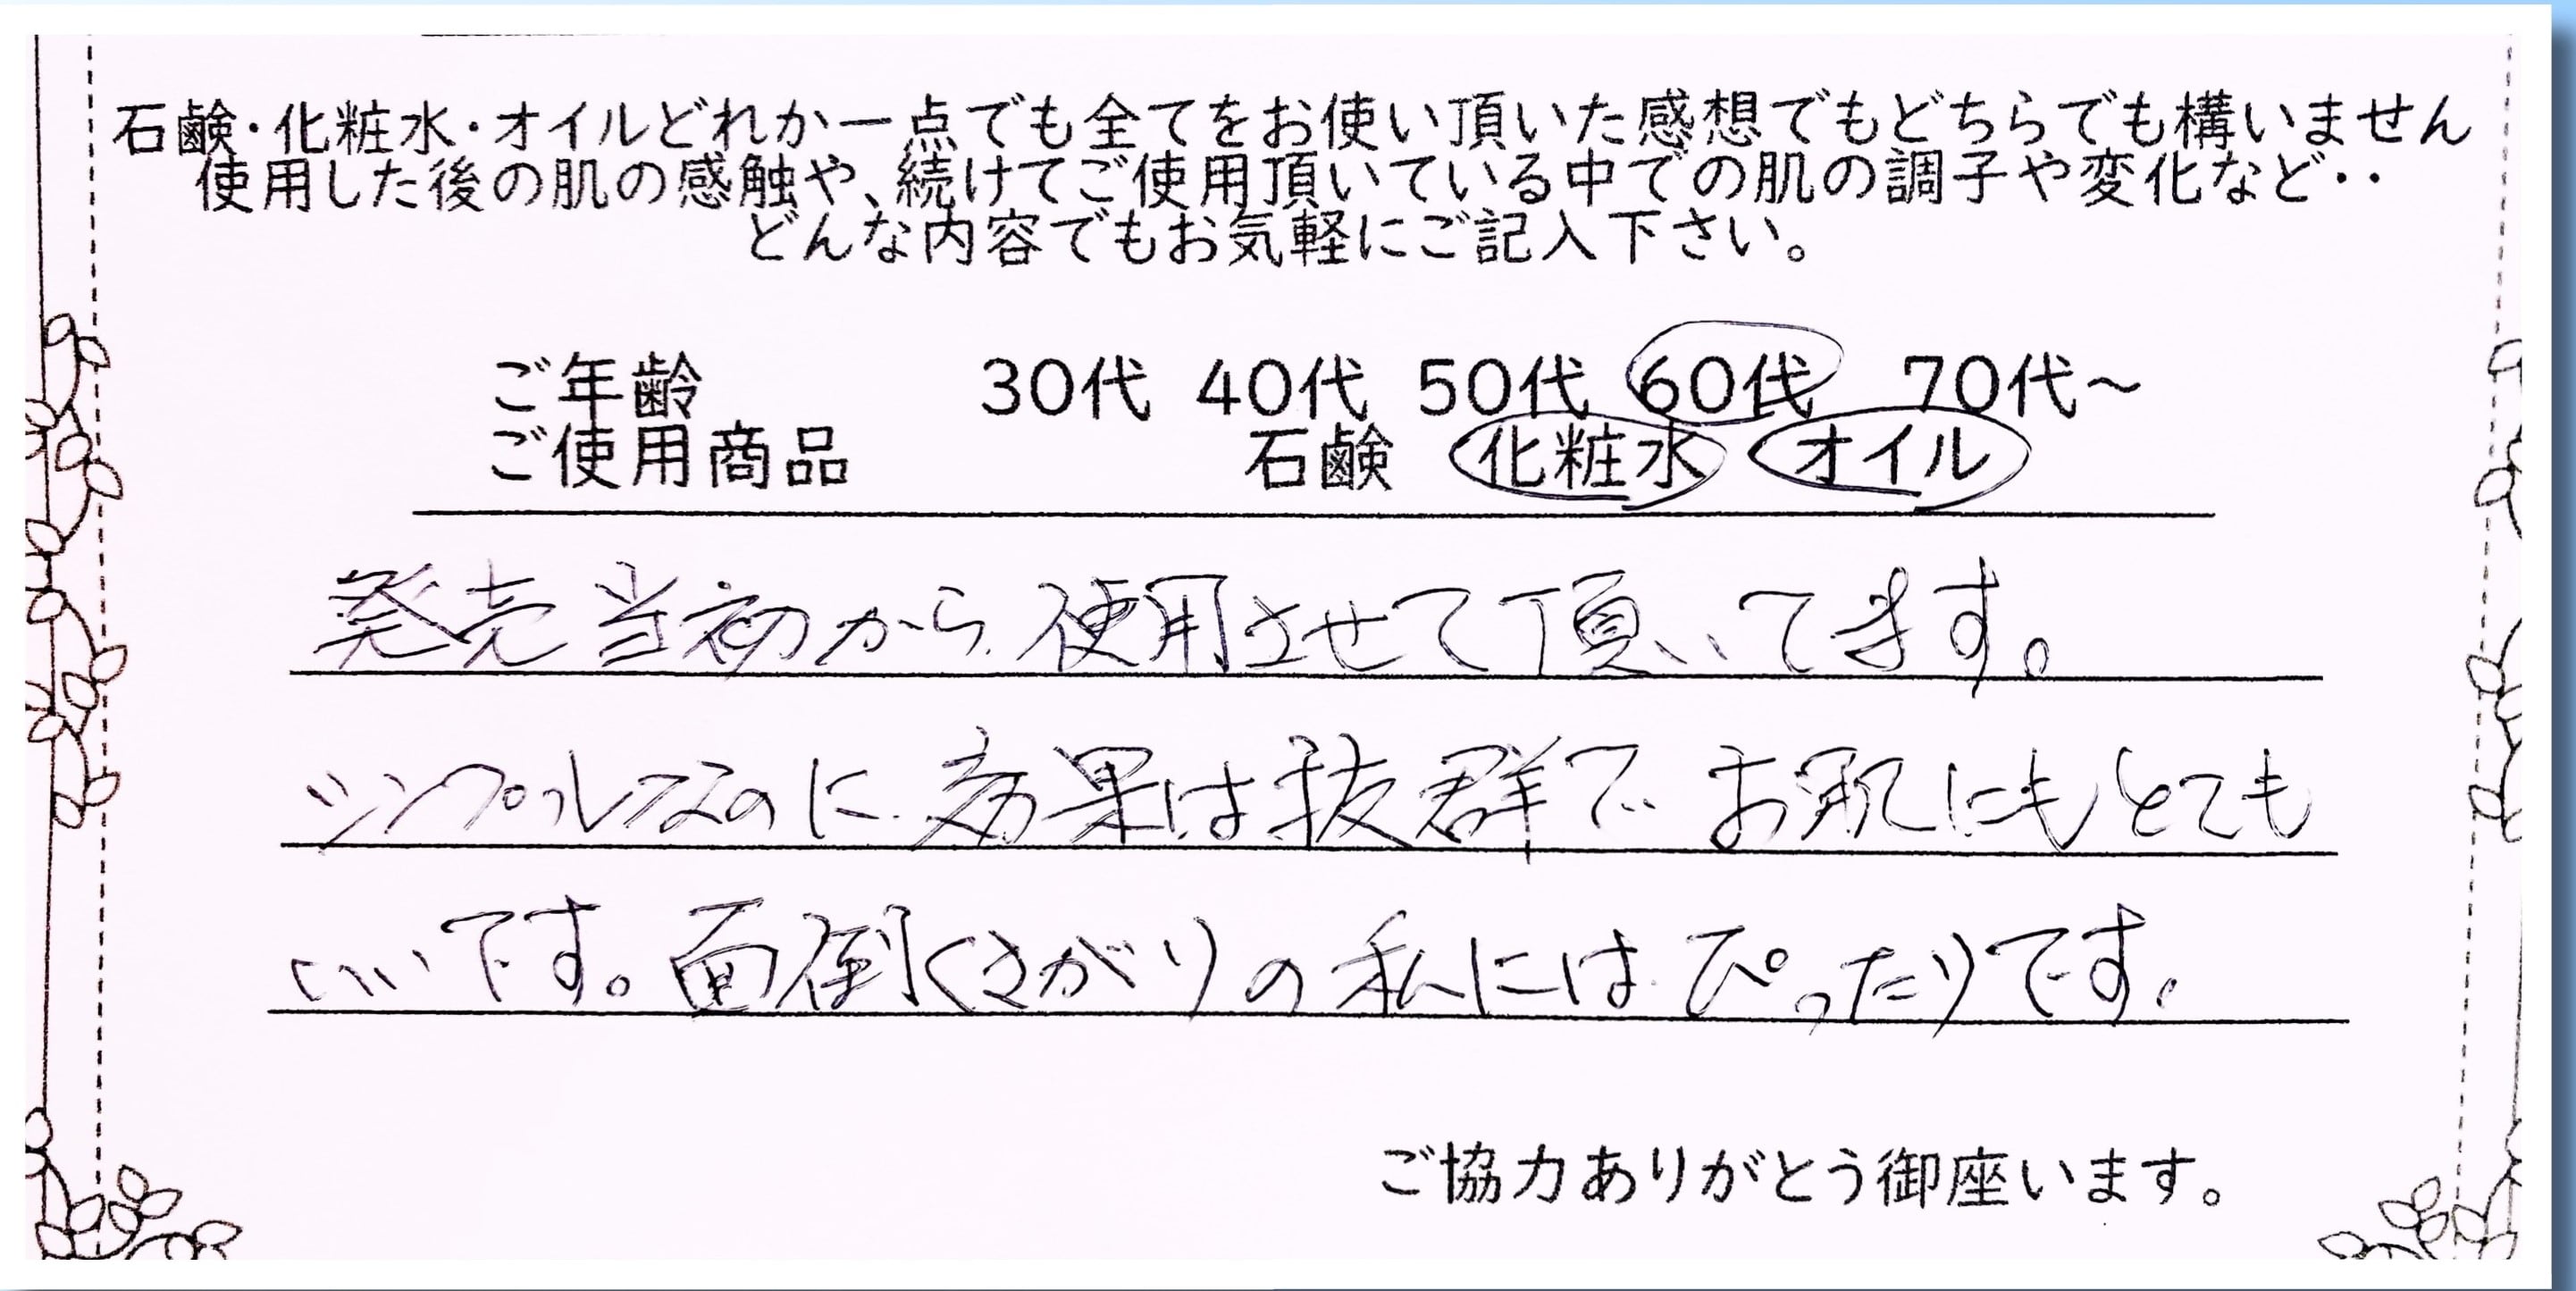 石鹸・化粧水・オイルどれか一点でも全てをお使い頂いた感想でもどちらでも構いません
使用した後の肌の感触や、続けてご使用頂いている中での肌の調子や変化など‥
どんな内容でもお気軽にご記入下さい。
ご年齢 30代 40代 50代 60代 70代～
ご使用商品 石鹸 化粧水 オイル
発売当初から使用させて頂いてます。
シンプルなのに効果は抜群でお肌にもとても
いいです。面倒くさがりの私にはぴったりです。
ご協力ありがとう御座います。